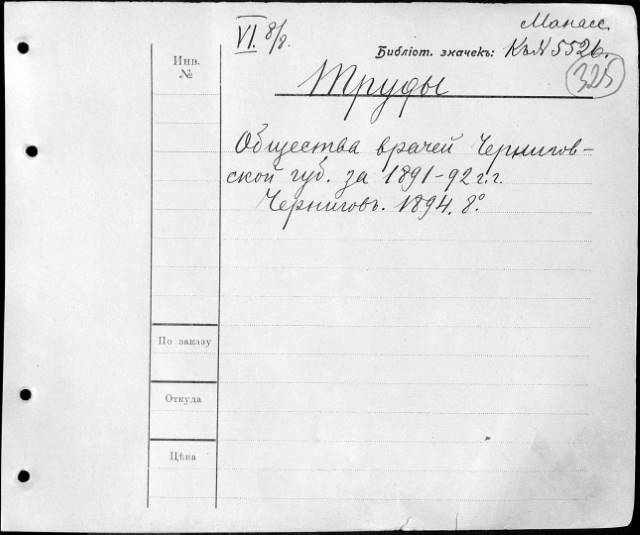 Манасс.
VI. 8/8.
Библіот. значекъ: КъN 5526.
325
Труды
Общества врачей Чернигов-
ской губ. за 1891-92 г.г.
Черниговъ. 1894. 8°
Инв.
№
По заказу
Откуда
Цѣна